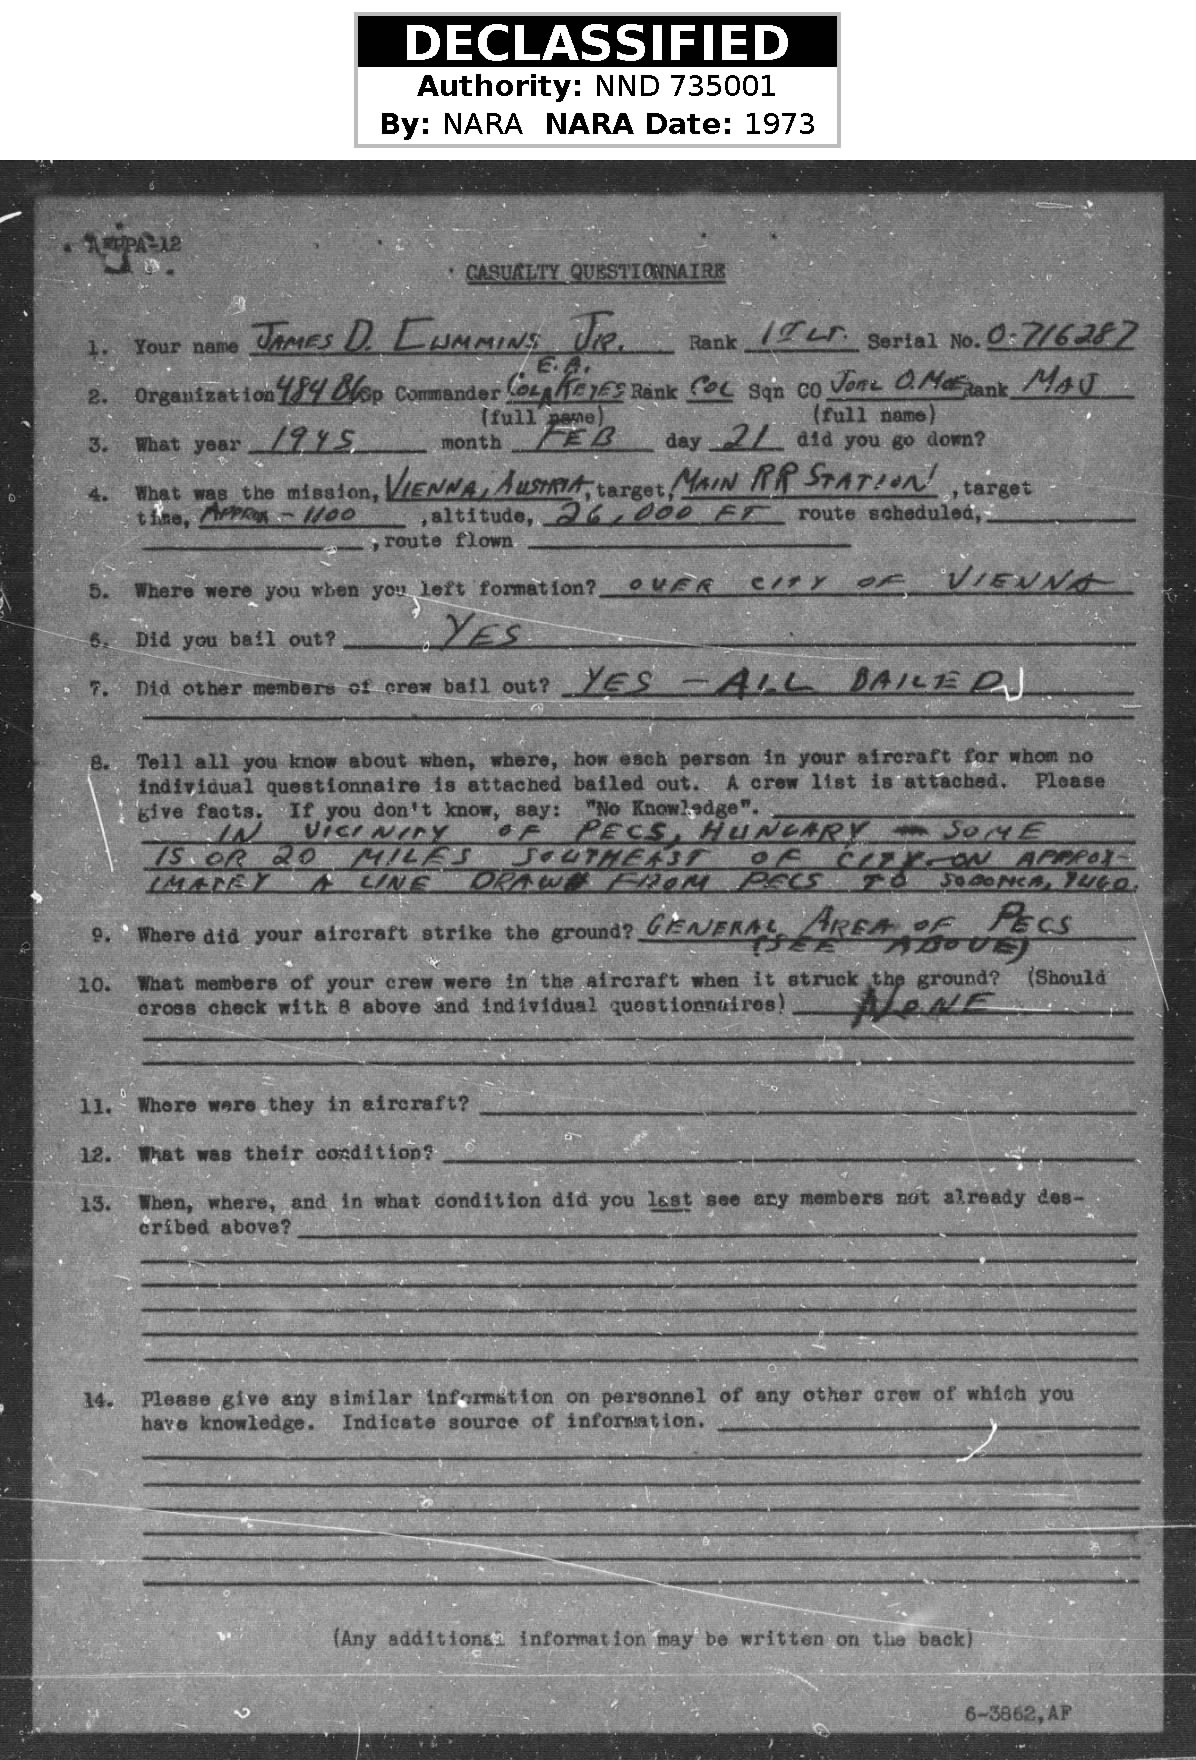 DECLASSIFIED
Authority: NND 735001
By: NARA NARA Date: 1973
CASUALTY QUESTIONNAIRE
1. Your name JAMES D. CUMMINS JR. Rank 1ST LT. Serial No. O-716287
E.A.
2. Organization 484 BG Gp Commander COL KEYES Rank COL Sqn CO JOAL O. Rank MAJ
(full name) (full name)
3. What year 1945 month FEB day 21 did you go down?
4. What was the mission, VIENNA, AUSTRIA, target, MAIN RR STATION , target
time, APPROX - 1100 , altitude, 26,000 FT route scheduled,
, route flown
5. Where were you when you left formation? OVER CITY OF VIENNA
6. Did you bail out? YES
7. Did other members of crew bail out? YES - ALL BAILED
8. Tell all you know about when, where, how each person in your aircraft for whom no
individual questionnaire is attached bailed out. A crew list is attached. Please
give facts. If you don't know, say: "No Knowledge".
IN VICINITY OF PECS, HUNGARY - SOME
15 OR 20 MILES SOUTHEAST OF CITY - ON APPROX-
IMATEY A LINE DRAWN FROM PECS TO YUGO.
9. Where did your aircraft strike the ground? GENERAL AREA OF PECS
(SEE ABOVE)
10. What members of your crew were in the aircraft when it struck the ground? (Should
cross check with 8 above and individual questionnaires) NONE
11. Where were they in aircraft?
12. What was their condition?
13. When, where, and in what condition did you last see any members not already des-
cribed above?
14. Please give any similar information on personnel of any other crew of which you
have knowledge. Indicate source of information.
(Any additional information may be written on the back)
6-3862,AF